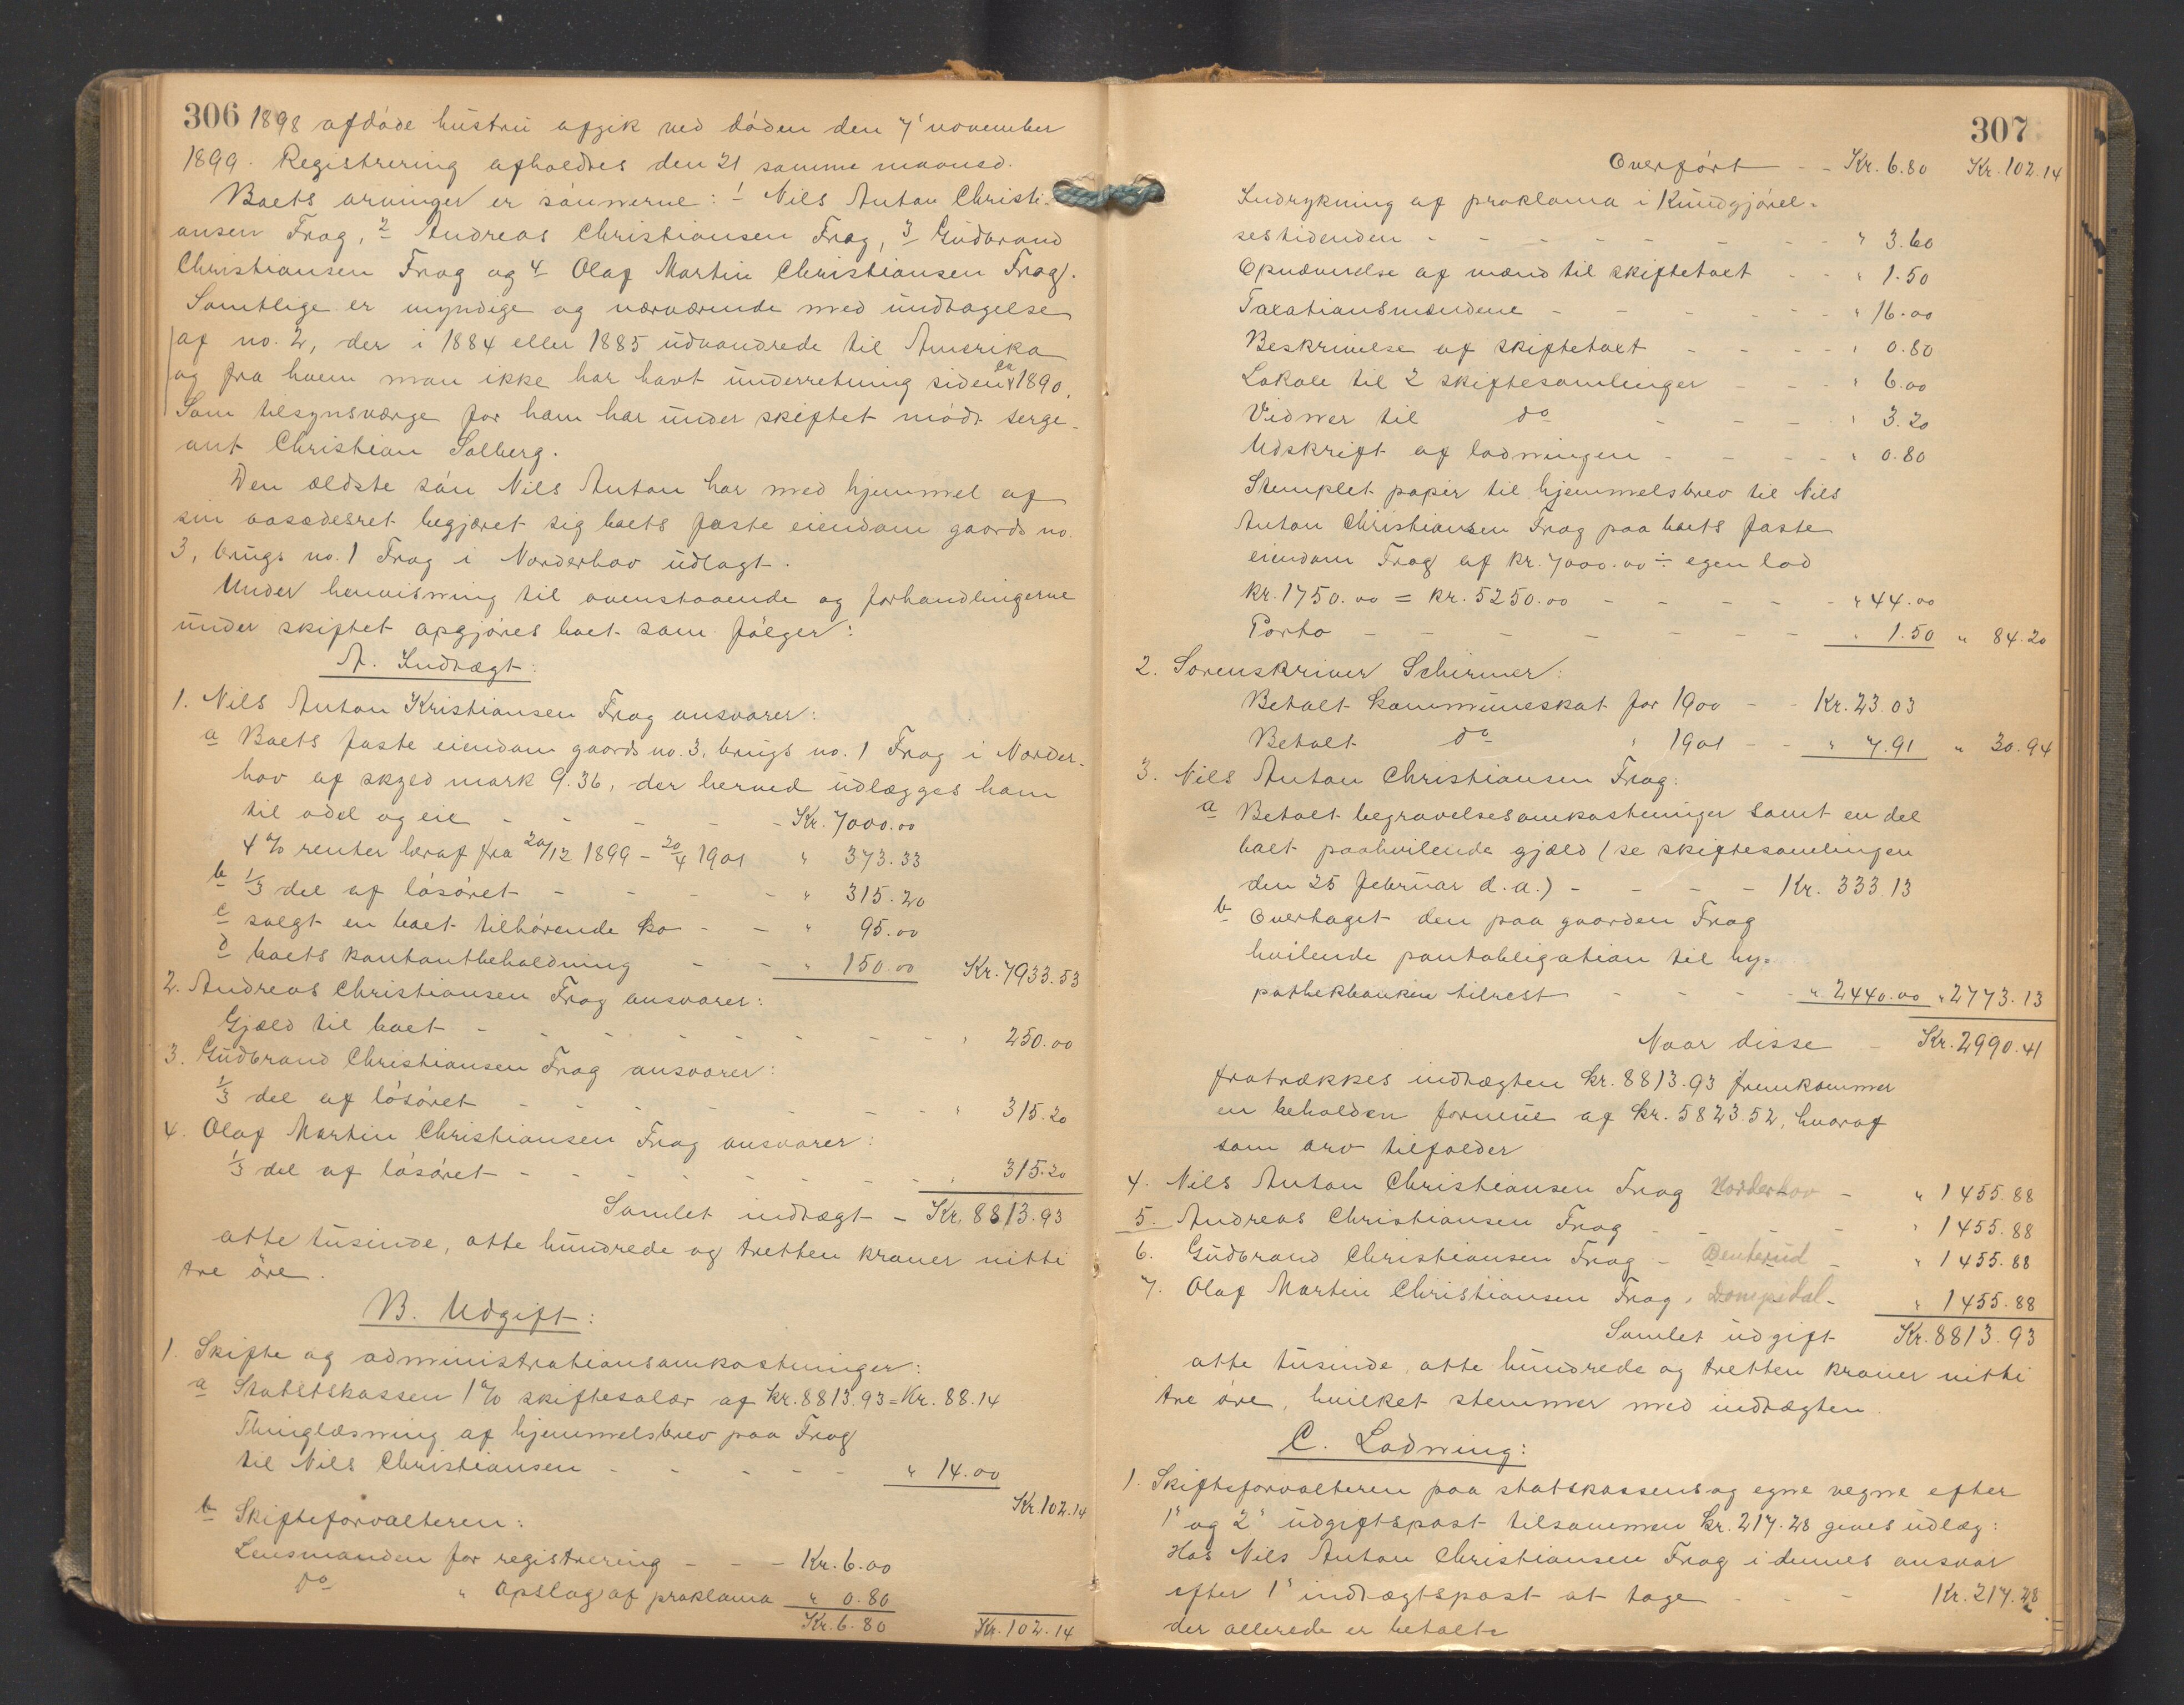 306 1898 afdøde hustru afgik ved døden den 7' november
1899. Registrering afholdtes den 21 samme maaned.
Boets arvinger er sønnerne: 1 Nils Anton Christi-
ansen Frog, 2 Andreas Christiansen Frog, 3 Gudbrand
Christiansen Frog og 4 Olaf Martin Christiansen Frog.
Samtlige er myndige og nærværende med undtagelse
af no. 2, der i 1884 eller 1885 udvandrede til Amerika
og fra hvem man ikke har havt underretning siden ca 1890.
Som tilsynsværge for ham har under skiftet mødt serge-
ant Christian Solberg.
Den ældste søn Nils Anton har med hjemmel af
sin aasædesret begjæret sig boets faste eiendom gaards no.
3, brugs no. 1 Frog i Norderhov udlagt.
Under henvisning til ovenstaaende og forhandlingerne
under skiftet opgjøres boet som følger:
A. Indtægt:
1. Nils Anton Kristiansen Frog ansvarer:
a Boets faste eiendom gaards no. 3, brugs no. 1 Frog i Norder-
hov af skyld mark 9.36, der herved udlægges ham
til odel og eie - - - - - Kr. 7000.00
4 % renter heraf fra 20/12 1899 - 20/4 1901 " 373.33
b 1/3 del af løsøret - - - - " 315.20
c solgt en boet tilhørende ko - - " 95.00
d boets kontantbeholdning - - " 150.00 Kr. 7933.53
2. Andreas Christiansen Frog ansvarer:
Gjæld til boet - - - - - - - - " 250.00
3. Gudbrand Christiansen Frog ansvarer:
1/3 del af løsøret - - - - - - - - " 315.20
4. Olaf Martin Christiansen Frog ansvarer:
1/3 del af løsøret - - - - - - - - " 315.20
Samlet indtægt - Kr. 8813.93
otte tusinde, otte hundrede og tretten kroner nitti
tre øre.
B. Udgift:
1. Skifte og administrationsomkostninger:
a Statskassen 1 % skiftesalær af kr. 8813.93 = Kr. 88.14
Thinglæsning af hjemmelsbrev paa Frog
til Nils Christiansen - - - - - " 14.00
Kr. 102.14
b Skifteforvalteren:
Lensmanden for registrering - - - Kr. 6.00
do " opslag af proklama " 0.80
Kr. 6.80 Kr. 102.14
307
Overført - - Kr. 6.80 Kr. 102.14
Indrykning af proklama i Kundgjørel-
sestidenden - - - - - - - " 3.60
Opnævnelse af mænd til skiftetaxt - - " 1.50
Taxationsmændene - - - - - " 16.00
Beskrivelse af skiftetaxt - - - - " 0.80
Lokale til 2 skiftesamlinger - - - " 6.00
Vidner til do - - - " 3.20
Udskrift af lodningen - - - - " 0.80
Stemplet papir til hjemmelsbrev til Nils
Anton Christiansen Frog paa boets faste
eiendom Frog af kr. 7000.00 ÷ egen lod
kr. 1750.00 = kr. 5250.00 - - - - - " 44.00
Porto - - - - - - - " 1.50 " 84.20
2. Sorenskriver Schirmer:
Betalt kommuneskat for 1900 - - Kr. 23.03
Betalt do " 1901 - - " 7.91 " 30.94
3. Nils Anton Christiansen Frog:
a Betalt begravelsesomkostninger samt en del
boet paahvilende gjæld (se skiftesamlingen
den 25 februar d. a.) - - - - Kr. 333.13
b Overtaget den paa gaarden Frog
hvilende pantobligation til hy-
pothekbanken tilrest - - - - " 2440.00 " 2773.13
Naar disse - Kr. 2990.41
fratrækkes indtægten kr. 8813.93 fremkommer
en beholden formue af kr. 5823.52, hvoraf
som arv tilfalder
4. Nils Anton Christiansen Frog Norderhov - " 1455.88
5. Andreas Christiansen Frog - - - - " 1455.88
6. Gudbrand Christiansen Frog - Benterud - " 1455.88
7. Olaf Martin Christiansen Frog, Dompidal - " 1455.88
Samlet udgift Kr. 8813.93
otte tusinde, otte hundrede og tretten kroner nitti
tre øre, hvilket stemmer med indtægten.
C. Lodning:
1. Skifteforvalteren paa statskassens og egne vegne efter
1" og 2" udgiftspost tilsammen kr. 217.28 gives udlæg:
Hos Nils Anton Christiansen Frog i dennes ansvar
efter 1" indtægtspost at tage - - - Kr. 217.28
der allerede er betalte